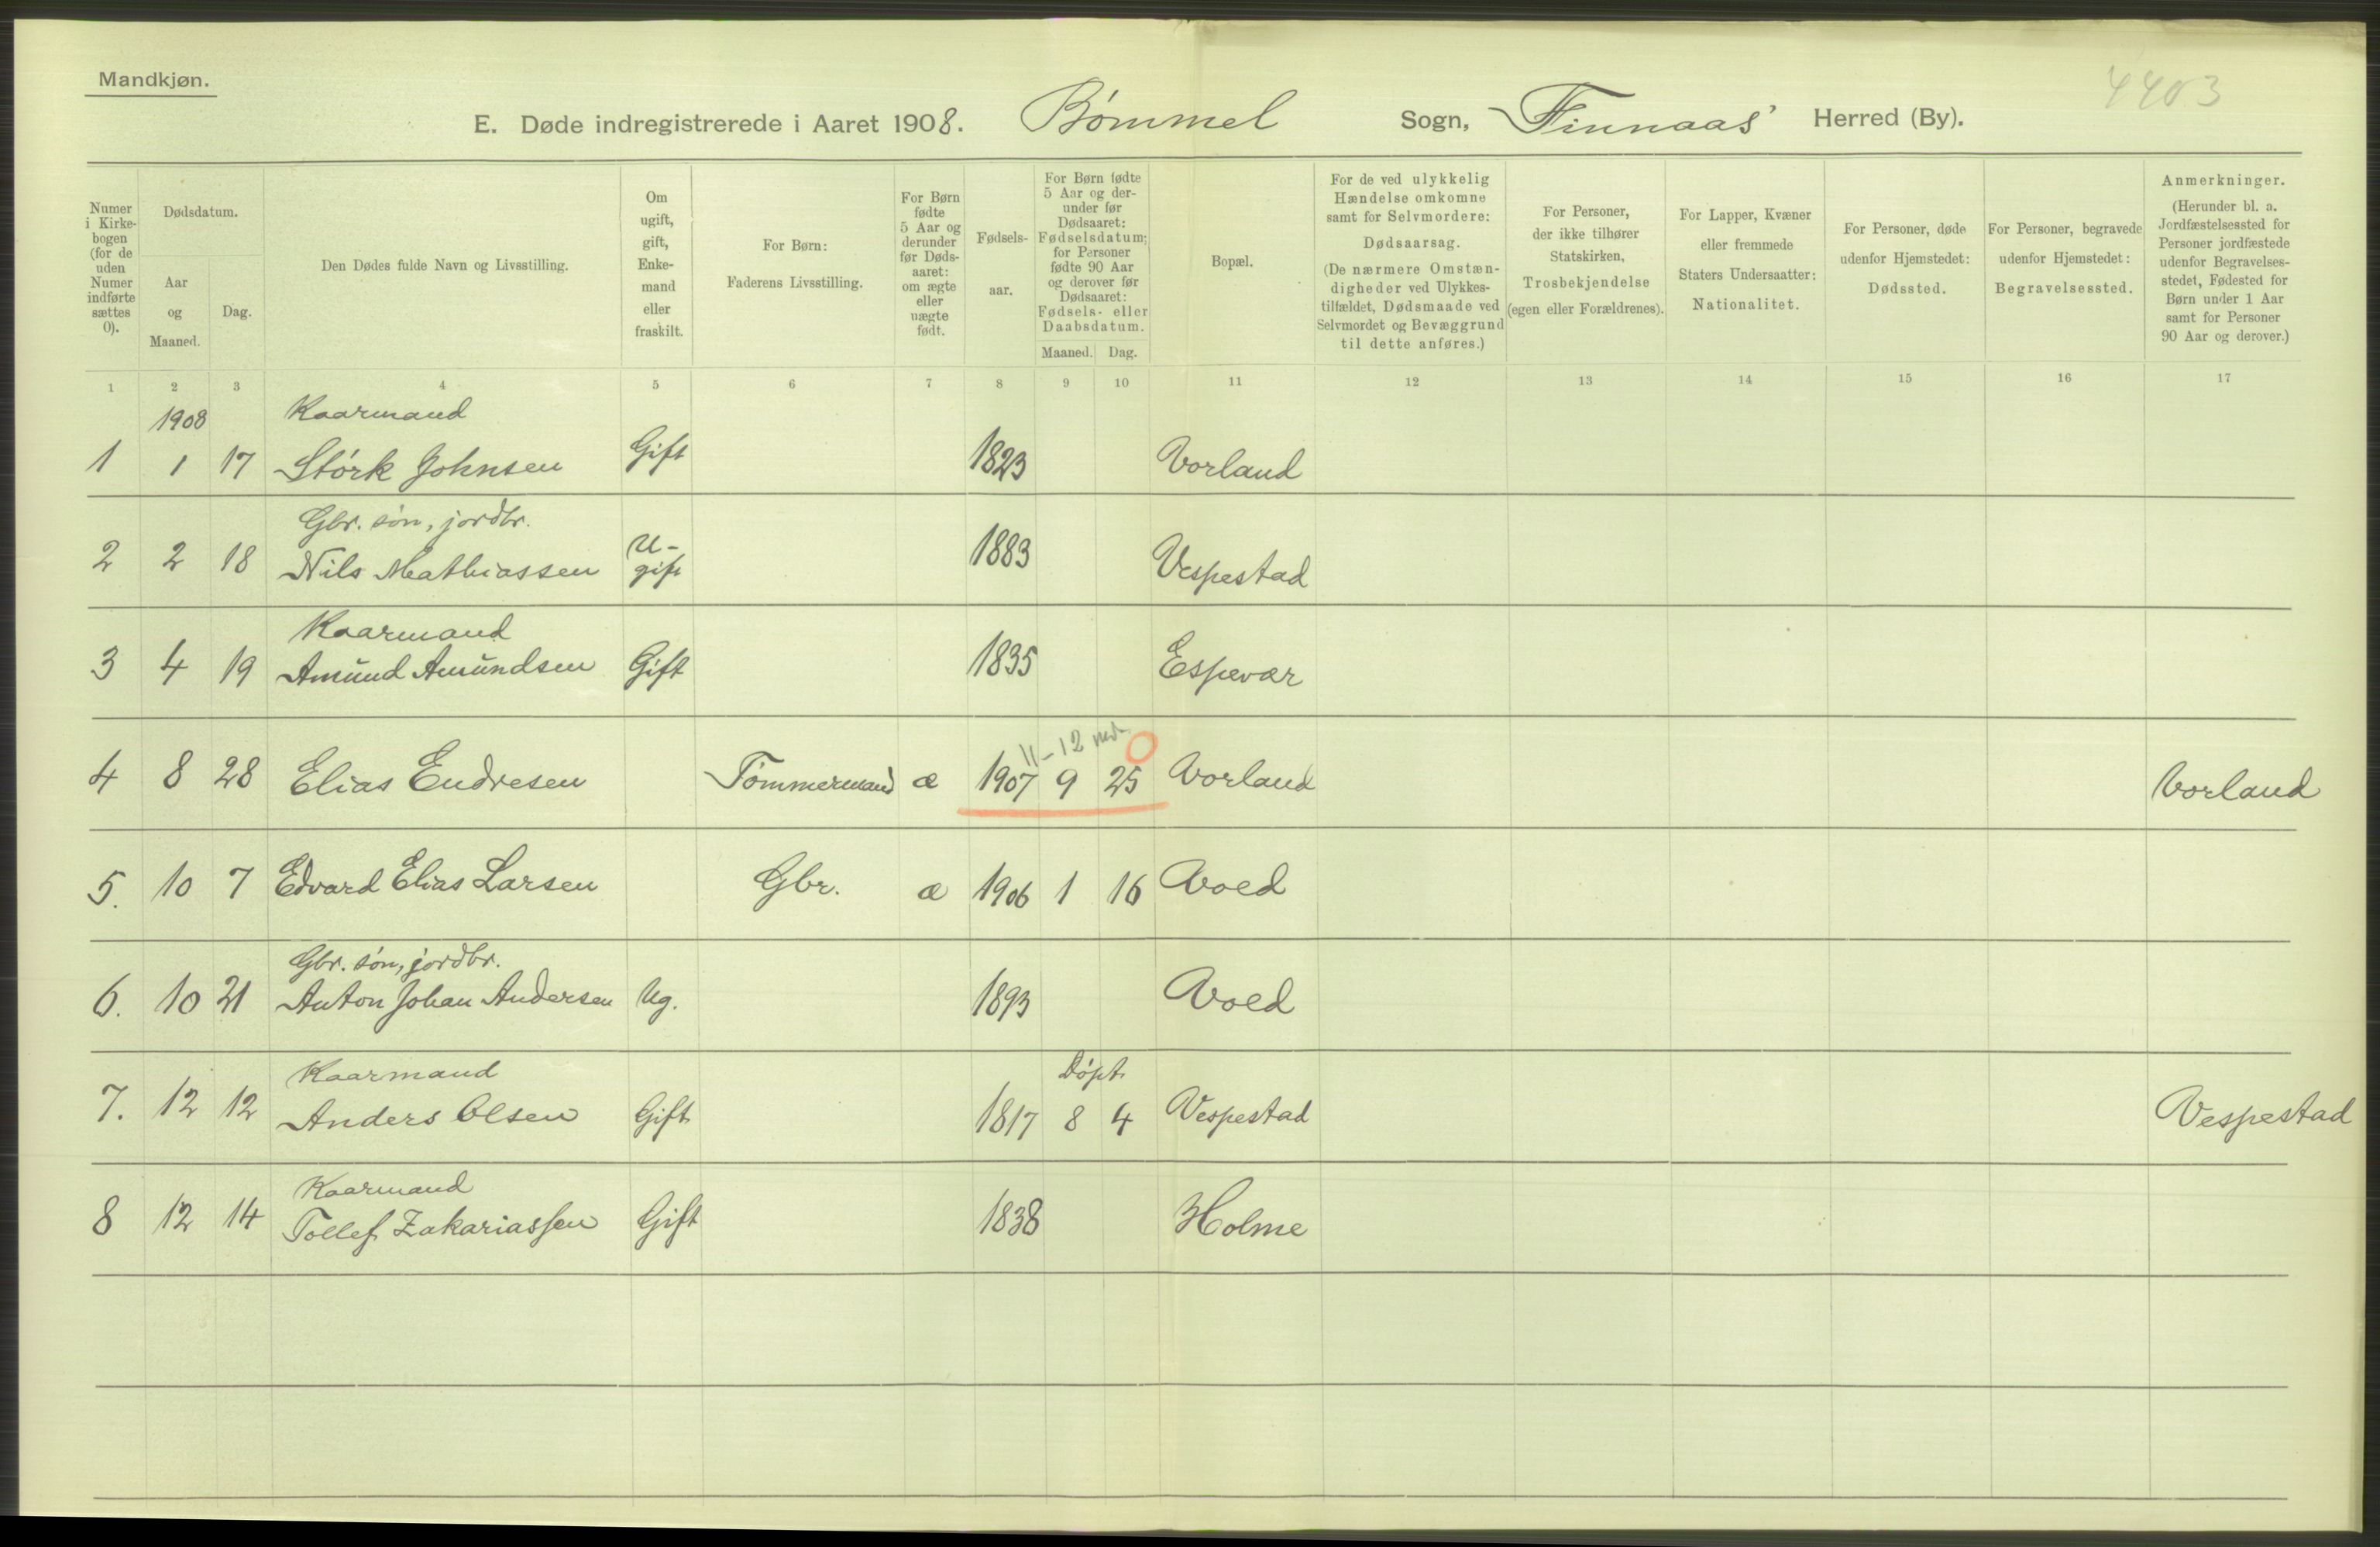 Mandkjøn.
4403
E. Døde indregistrerede i Aaret 1908. Bømmel Sogn, Finnaas Herred (By).
Numer i Kirkebogen (for de uden Numer indførte sættes 0).
Dødsdatum.
Aar og Maaned.
Dag.
Den Dødes fulde Navn og Livsstilling.
Om ugift, gift, Enkemand eller fraskilt.
For Børn: Faderens Livsstilling.
For Børn fødte 5 Aar og derunder før Dødsaaret: om ægte eller uægte født.
Fødselsaar.
For Børn fødte 5 Aar og derunder før Dødsaaret: Fødselsdatum; for Personer fødte 90 Aar og derover før Dødsaaret: Fødsels- eller Daabsdatum.
Maaned. Dag.
Bopæl.
For de ved ulykkelig Hændelse omkomne samt for Selvmordere: Dødsaarsag. (De nærmere Omstændigheder ved Ulykkestilfældet, Dødsmaade ved Selvmordet og Bevæggrund til dette anføres.)
For Personer, der ikke tilhører Statskirken, Trosbekjendelse (egen eller Forældrenes).
For Lapper, Kvæner eller fremmede Staters Undersaatter: Nationalitet.
For Personer, døde udenfor Hjemstedet: Dødssted.
For Personer, begravede udenfor Hjemstedet: Begravelsessted.
Anmerkninger. (Herunder bl. a. Jordfæstelsessted for Personer jordfæstede udenfor Begravelsesstedet, Fødested for Børn under 1 Aar samt for Personer 90 Aar og derover.)
1 2 3 4 5 6 7 8 9 10 11 12 13 14 15 16 17
1908 Kaarmand
1 1 17 Størk Johnsen Gift 1823 Vorland
Gbr. søn, jordbr.
2 2 18 Nils Mathiassen U-gift 1883 Vespestad
Kaarmand
3 4 19 Amund Amundsen Gift 1835 Espevær
11-12
4 8 28 Elias Endresen Tømmermand æ 1907 9 25 Vorland Vorland
5. 10 7 Edvard Elias Larsen Gbr. æ 1906 1 16 Qvoed
Gbr. søn, jordbr.
6. 10 21 Anton Johan Andersen Ug. 1893 Qvoed
Kaarmand Døpt
7. 12 12 Anders Olsen Gift 1817 8 4 Vespestad Vespestad
Kaarmand
8 12 14 Tollef Zakariassen Gift 1838 Holme